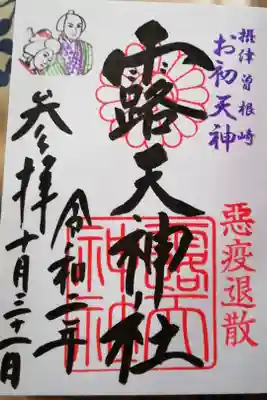 摂津曽根崎
お初天神
露天神社
惡疫退散
令和二年
参拝
十月三十一日